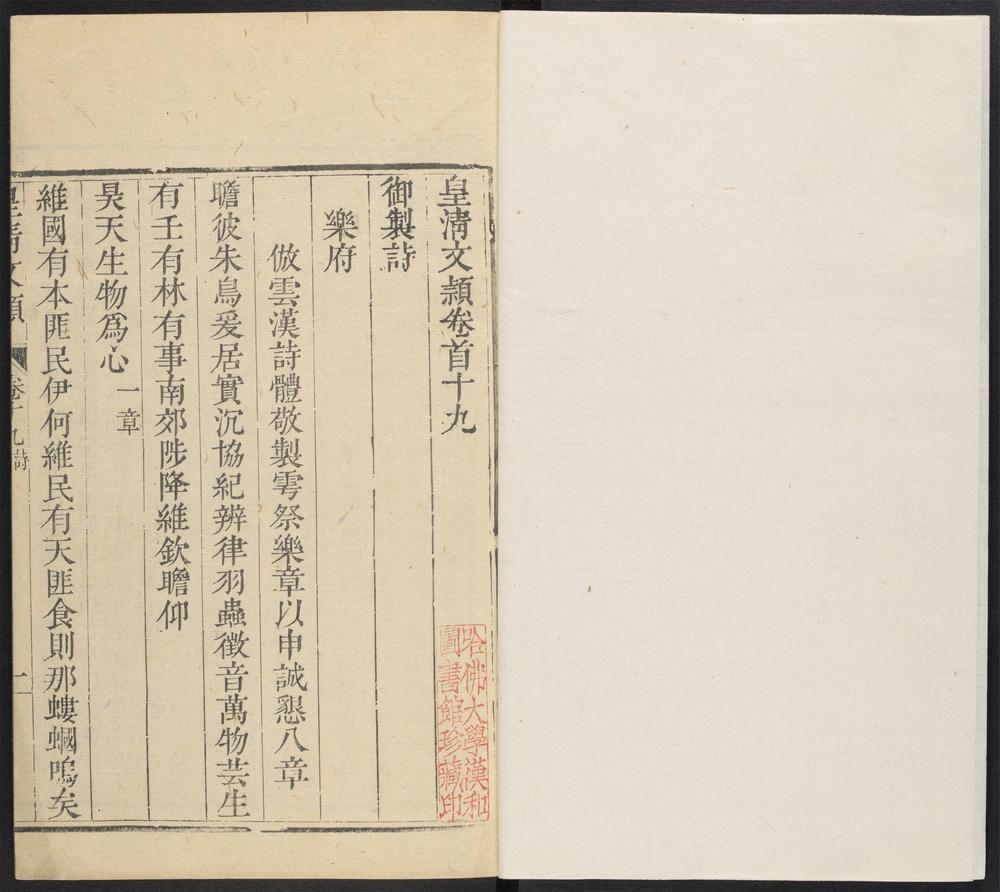 皇淸文穎卷首十九
御製詩
樂府
倣雲漢詩體敬製雩祭樂章以申誠懇八章
瞻彼朱鳥爰居實沉協紀辨律羽蟲徵音萬物芸生
有壬有林有事南郊陟降維欽瞻仰
昊天生物爲心 一章
維國有本匪民伊何維民有天匪食則那螻蟈鳴矣
皇淸文穎 卷十九 詩 一
哈佛大學漢和
圖書館珍藏印